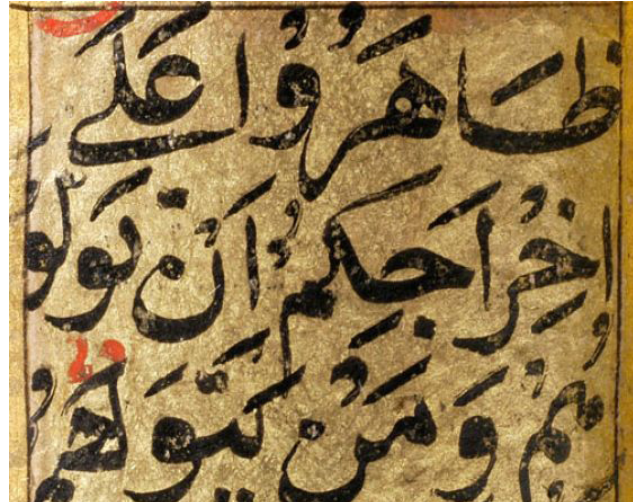 ظَاهَرُوْا عَلَى
اِخْرَاجِكُمْ اَنْ تَوَلَّو
هُمْ وَمَنْ يَتَوَلَّهُمْ